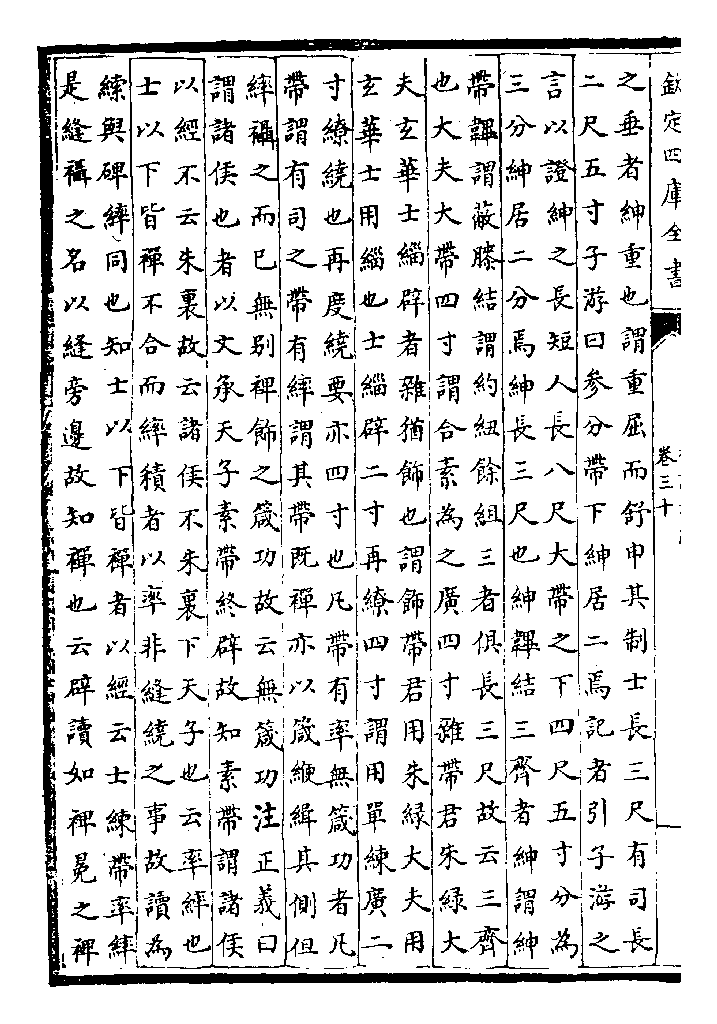 欽定四庫全書
卷三十
之垂者紳重也謂重屈而舒申其制士長三尺有司長
二尺五寸子游曰参分帶下紳居二焉記者引子游之
言以證紳之長短人長八尺大帶之下四尺五寸分為
三分紳居二分焉紳長三尺也紳韠結三齊者紳謂紳
帶韠謂蔽膝結謂約紐餘組三者俱長三尺故云三齊
也大夫大帶四寸謂合素為之廣四寸雜帶君朱緑大
夫玄華士緇辟者雜猶飾也謂飾帶君用朱緑大夫用
玄華士用緇也士緇辟二寸再繚四寸謂用單練廣二
寸繚繞也再度繞要亦四寸也凡帶有率無箴功者凡
帶謂有司之帶有繂謂其帶既襌亦以箴緶緝其側但
繂襵之而已無别裨飾之箴功故云無箴功注正義曰
謂諸侯也者以文承天子素帶終辟故知素帶謂諸侯
以經不云朱裏故云諸侯不朱裏下天子也云率繂也
士以下皆襌不合而繂積者以率非縫繞之事故讀為
繂與碑繂同也知士以下皆襌者以經云士練帶率繂
是縫襵之名以縫旁邊故知襌也云辟讀如裨冕之裨